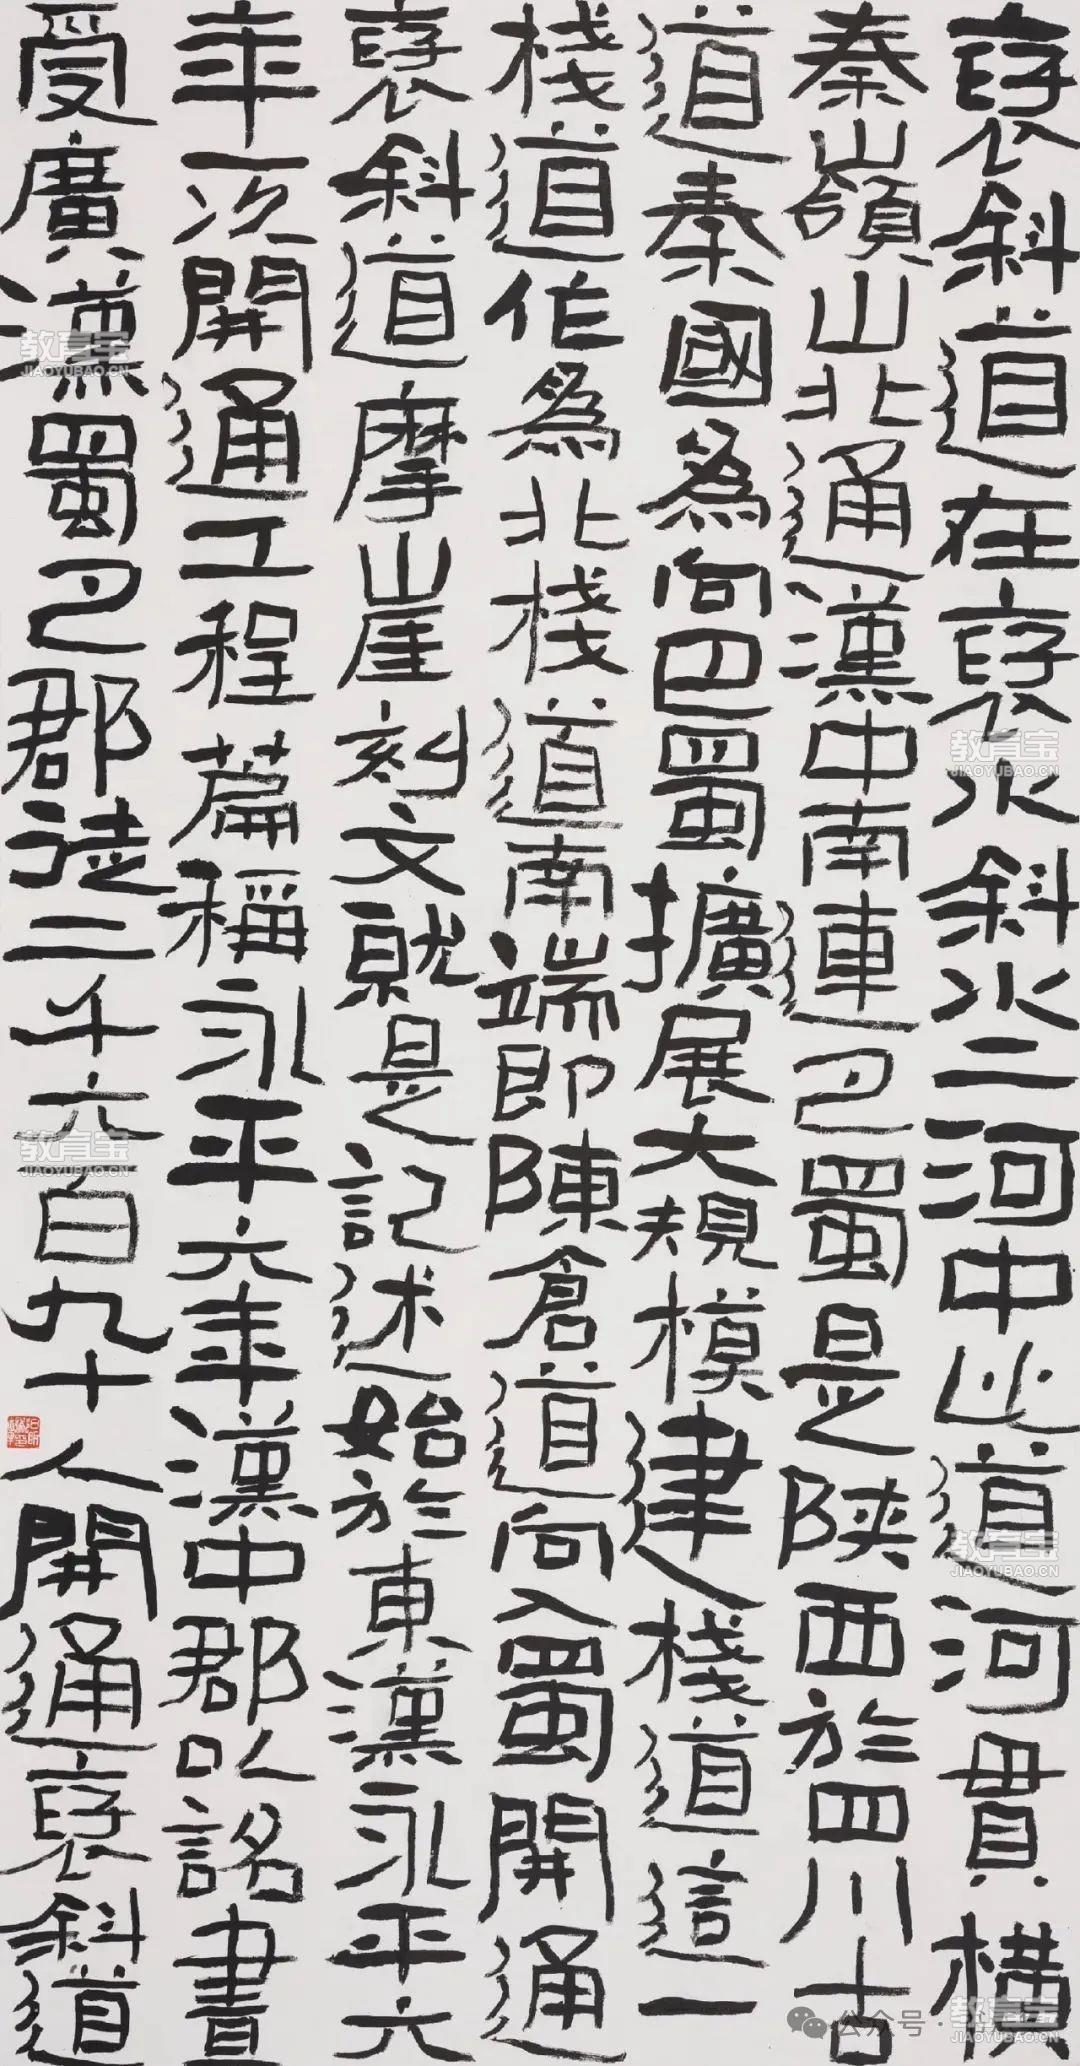 褒斜道在褒水斜水二河中此道河貫横
秦嶺山北通漢中南連巴蜀是陝西於四川古
道秦國為向巴蜀擴展大規模建棧道這一
棧道作為北棧道南端即陳倉道向入蜀開通
褒斜道摩崖刻文就是記述始於東漢永平六
年一次開通工程篇稱永平六年漢中郡以詔書
受廣漢蜀巴郡徒二千六百九十人開通褒斜道
教育宝
JIAOYUBAO.CN
教育宝
JIAOYUBAO.CN
教育宝
JIAOYUBAO.CN
教育宝
JIAOYUBAO.CN
公众号·
教育宝
JIAOYUBAO.CN